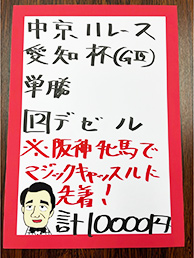 中京11レース
愛知杯(GⅢ)
単勝
12デゼル
※阪神牝馬で
マジックキャッスルに
先着!
計10000円